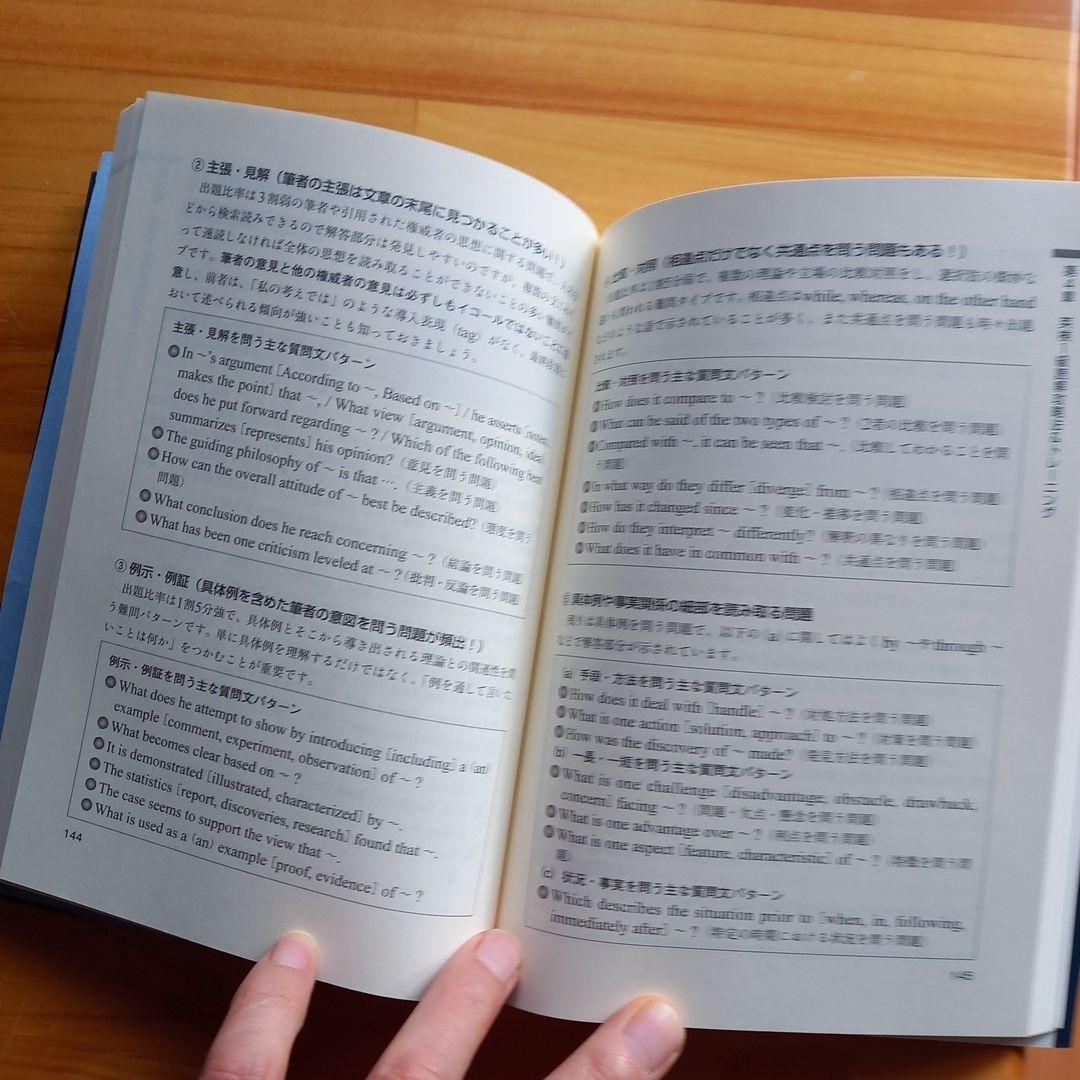 ② 主張・見解（筆者の主張は文章の末尾に見つかることが多い！）
出題比率は3割弱の筆者や引用された権威者の思想に関する問題で、
どから検索読みできるので解答部分は発見しやすいのですが、複数の
って速読しなければ全体の思想を読み取ることができないことの多い
プです。筆者の意見と他の権威者の意見は必ずしもイコールではないことに
意し、前者は、「私の考えでは」のような導入表現（tag）がなく、
おいて述べられる傾向が強いことも知っておきましょう。
主張・見解を問う主な質問文パターン
In ～'s argument［According to ～, Based on ～］/ he asserts［notes,
makes the point］that ～, / What view［argument, opinion, idea］
does he put forward regarding ～？/ Which of the following best
summarizes［represents］his opinion?（意見を問う問題）
The guiding philosophy of ～ is that ….（主義を問う問題）
How can the overall attitude of ～ best be described?（態度を問う
問題）
What conclusion does he reach concerning ～？（結論を問う問題）
What has been one criticism leveled at ～？（批判・反論を問う問題）
③ 例示・例証（具体例を含めた筆者の意図を問う問題が頻出！）
出題比率は1割5分強で、具体例とそこから導き出される理論との関連性を問
う難問パターンです。単に具体例を理解するだけではなく、「例を通して言いた
いことは何か」をつかむことが重要です。
例示・例証を問う主な質問文パターン
What does he attempt to show by introducing［including］a (an)
example［comment, experiment, observation］of ～？
What becomes clear based on ～？
It is demonstrated［illustrated, characterized］by ～.
The statistics［report, discoveries, research］found that ～.
The case seems to support the view that ～.
What is used as a (an) example［proof, evidence］of ～？
144
比較・対照（相違点だけでなく共通点を問う問題もある！）
複数の理論や立場の比較対照をし、
問われる難問タイプです。相違点はwhile, whereas, on the other hand
などのような語で示されていることが多く、また共通点を問う問題も時々出題
されます。
比較・対照を問う主な質問文パターン
How does it compare to ～？（比較検討を問う問題）
What can be said of the two types of ～？（2者の比較を問う問題）
Compared with ～, it can be seen that ～.（比較してわかることを問
う問題）
In what way do they differ［diverge］from ～？（相違点を問う問題）
How has it changed since ～？（変化・推移を問う問題）
How do they interpret ～ differently?（解釈の異なりを問う問題）
What does it have in common with ～？（共通点を問う問題）
⑤ 具体例や事実関係の細部を読み取る問題
残りは具体例を問う問題で、以下の（a）に関してはよくby ～やthrough ～
などで解答部分が示されています。
(a) 手段・方法を問う主な質問文パターン
How does it deal with［handle］～？（対処方法を問う問題）
What is one action［solution, approach］to ～？（対策を問う問題）
How was the discovery of ～ made?（発見方法を問う問題）
(b) 一長・一短を問う主な質問文パターン
What is one challenge［disadvantage, obstacle, drawback,
concern］facing ～？（問題・欠点・懸念を問う問題）
What is one advantage over ～？（利点を問う問題）
What is one aspect［feature, characteristic］of ～？（特徴を問う問
題）
(c) 状況・事実を問う主な質問文パターン
Which describes the situation prior to［when, in, following,
immediately after］～？（特定の時期における状況を問う問題）
145